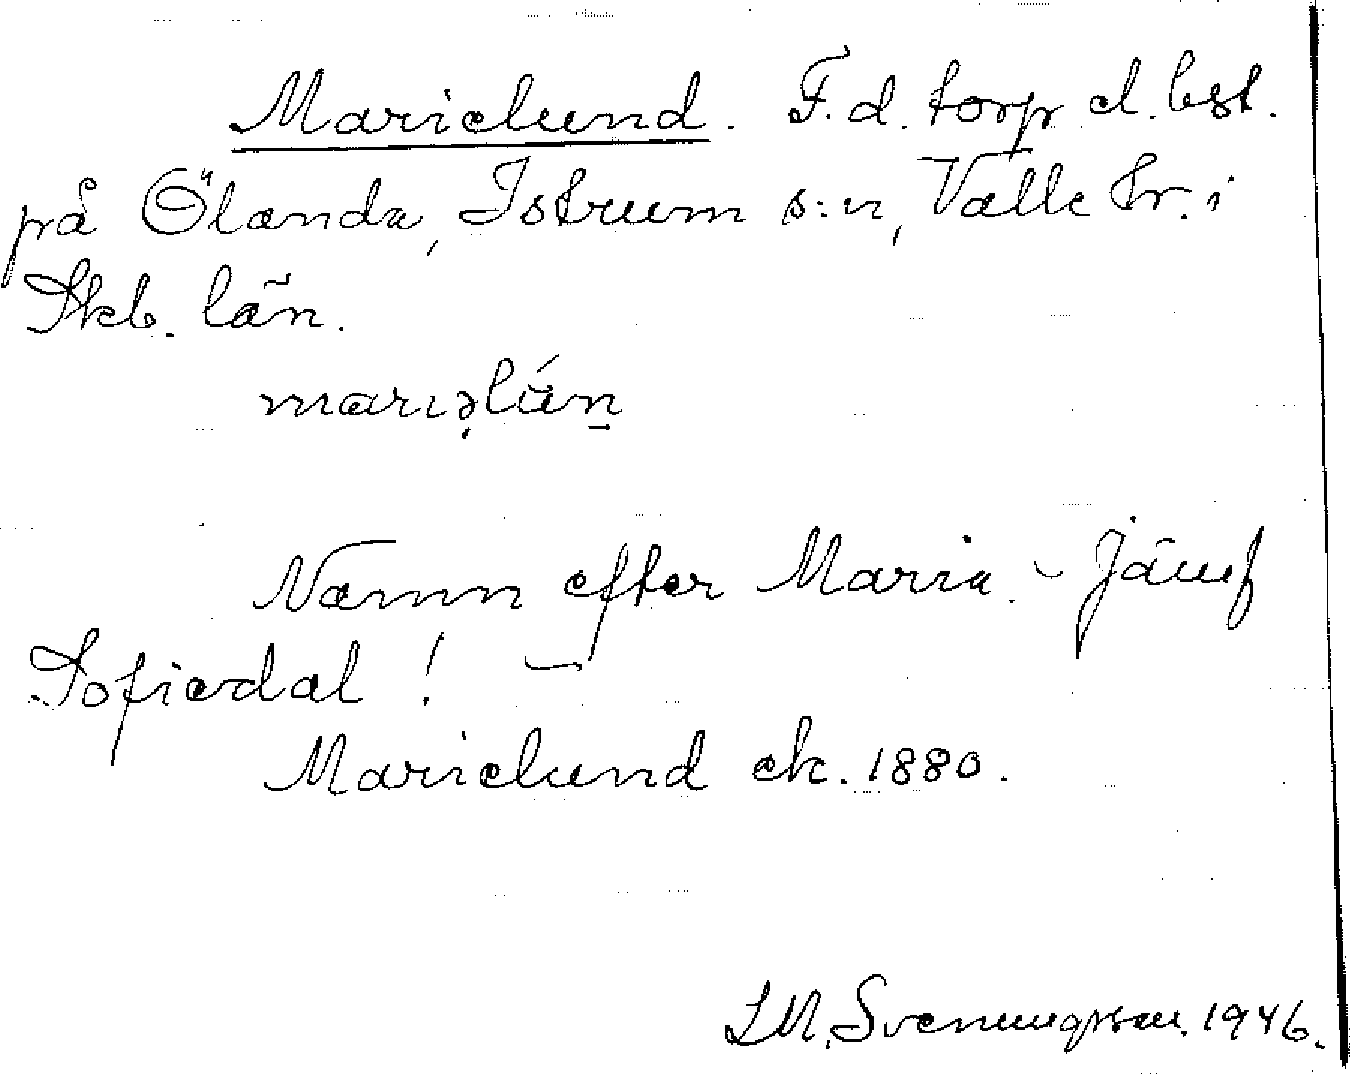 Marielund. F. d. torp el. bst.
på Ölanda, Istrum s:n, Valle hr. i
Skb. län.
marıə̣lún̠
Namn efter Maria. – Jämf
Sofiedal! –
Marielund ek. 1880.
LM. Svenungsson. 1946.